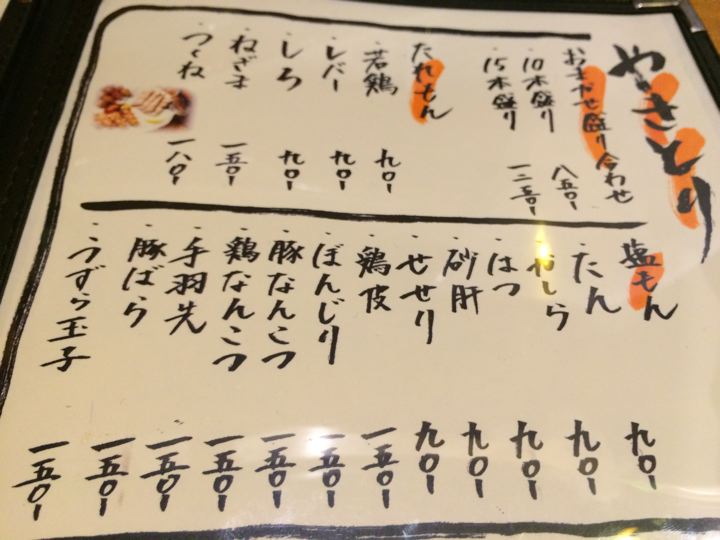 やきとり
おまかせ盛り合わせ
・10本盛り 八五〇-
・15本盛り 一二五〇-
たれもん
・若鶏 九〇-
・レバー 九〇-
・しろ 九〇-
・ねぎま 一五〇-
・つくね 一八〇-
塩もん
・たん 九〇-
・かしら 九〇-
・はつ 九〇-
・砂肝 九〇-
・せせり 九〇-
・鶏皮 一五〇-
・ぼんじり 一五〇-
・豚なんこつ 一五〇-
・鶏なんこつ 一五〇-
・手羽先 一五〇-
・豚ばら 一五〇-
・うずら玉子 一五〇-